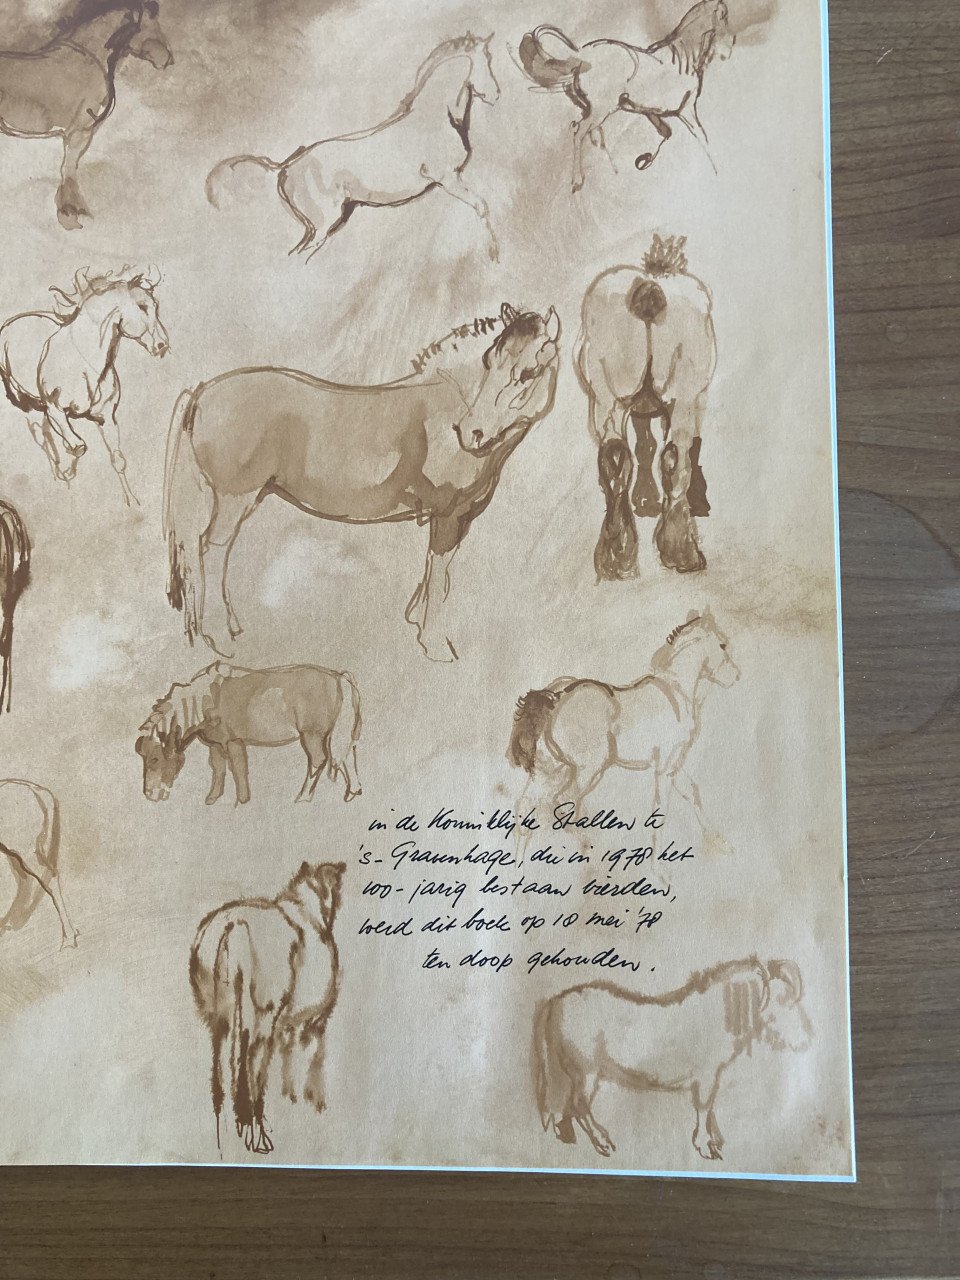 in de Koninklijke Stallen te
's-Gravenhage, die in 1978 het
100-jarig bestaan vierden,
werd dit boek op 18 mei '78
ten doop gehouden.